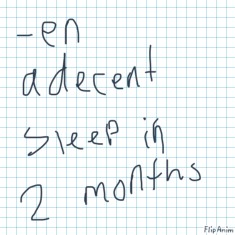 -en
a decent
sleep in
2 months
FlipAnim